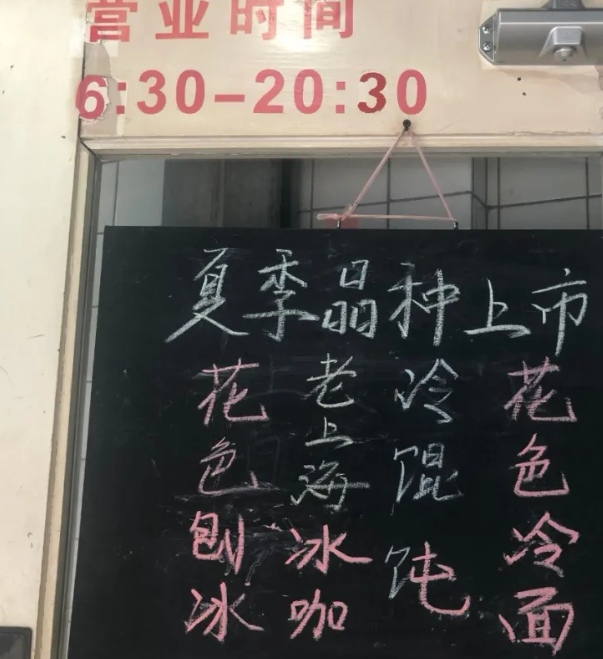 营业时间
6:30-20:30
夏季晶种上市
花色刨冰
老上海冰咖
冷馄饨
花色冷面